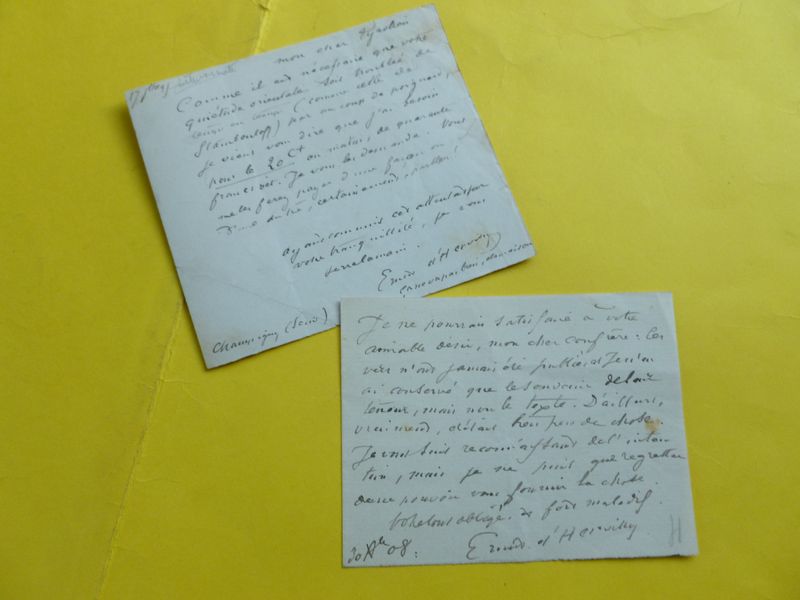 mon cher
Comme il est nécessaire que votre
quiétude orientale soit troublée de
temps en temps (comme celle de
Stambouloff) par un coup de poignard
je viens vous dire que j'ai besoin
pour le 20 ct au matin, de quarante
francs. Je vous les demande. Vous
me les ferez payer d'une façon ou
d'une autre, certainement,
Ayant commis cet attentat par
votre tranquillité, je vous
serre la main.
Ernest d'Hervilly
Champigny (Seine)
Je ne pourrais satisfaire à votre
aimable désir, mon cher confrère: les
vers n'ont jamais été publiés et je n'en
ai conservé que le souvenir de leur
teneur, mais non le texte. D'ailleurs,
vraiment, c'était bien peu de chose.
Je vous suis reconnaissant de l'inten
tion, mais je ne puis que regretter
de ne pouvoir vous fournir la chose.
Votre tout obligé, et fort maladif
Ernest d'Hervilly
30 Xbre 08.